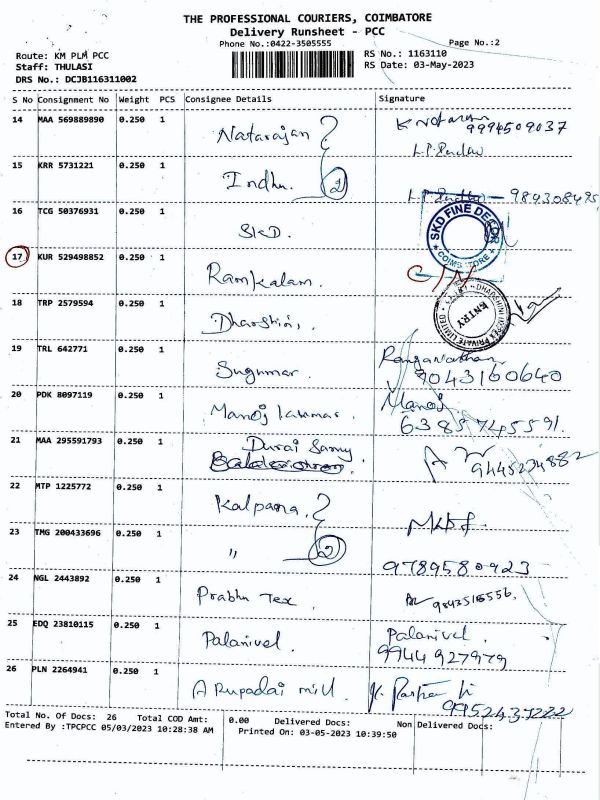 THE PROFESSIONAL COURIERS, COIMBATORE
Delivery Runsheet - PCC
Phone No.:0422-3505555
Page No.:2
Route: KM PLM PCC
Staff: THULASI
DRS No.: DCJB116311002
RS No.: 1163110
RS Date: 03-May-2023
S No Consignment No Weight PCS Consignee Details Signature
14 MAA 569889890 0.250 1 Natarajan
9994509037
15 KRR 5731221 0.250 1 Indhu. 2
16 TCG 50376931 0.250 1 SKD.
SKD FINE DECOR
COIMBATORE
17 KUR 529498852 0.250 1 Ramkalam.
18 TRP 2579594 0.250 1
ENTRY
PRIVATE LIMITED
19 TRL 642771 0.250 1 Sugumar. Ranganathan
9043160640
20 PDK 8097119 0.250 1 Manoj Kummar. Manoj
6385745591.
21 MAA 295591793 0.250 1 Durai Samy
9445234882
22 MTP 1225772 0.250 1 Kalpana.
23 TMG 200433696 0.250 1 " 2
9789580923
24 NGL 2443892 0.250 1 Prabhu Tex. 9843518556.
25 EDQ 23810115 0.250 1 Palanivel. Palanivel.
9944927979
26 PLN 2264941 0.250 1 Arupadai mill.
Total No. Of Docs: 26 Total COD Amt: 0.00 Delivered Docs: Non Delivered Docs:
Entered By :TPCPCC 05/03/2023 10:28:38 AM Printed On: 03-05-2023 10:39:50